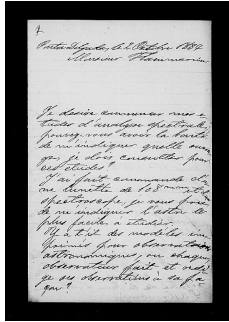 Ponta Delgada, le 2 Octobre 1884
Monsieur Flammarion
Je désire commencer mes é-
tudes d'analyse spectrale,
pouvez-vous avoir la bonté
de m'indiquer quels ouvra-
ges je dois consulter pour
ces études?
J'ai fait commande d'u-
ne lunette de 108 mm et d'
spectroscope, je vous prie
de m'indiquer l'astre le
plus facile a étudier.
Y a t'il des modèles im-
primés pour observatoires
astronomiques, ou chaque
observateur fait et rédi-
ge ses observations a sa fa-
çon?